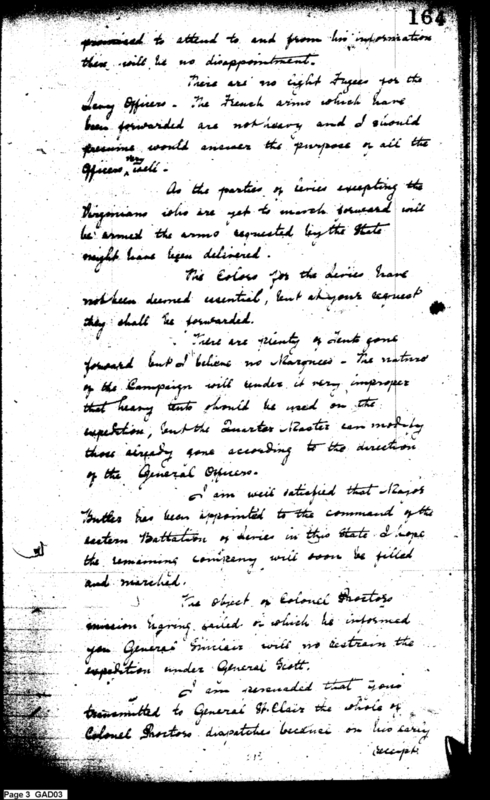 164
promised to attend to and from his information
there will be no disappointment.
There are no light Fuzees for the
Levy Officers - The French arms which have
been forwarded are not heavy and I should
presume would answer the purpose of all the
Officers very well -
As the parties of Levies excepting the
Virginians who are yet to march forward will
be armed the arms requested by the State
might have been delivered.
The Colors for the Levies have
not been deemed essential, but at your request
they shall be forwarded.
There are plenty of Tents gone
forward but I believe no Marquees - The nature
of the Campaign will render it very improper
that heavy tents should be used on the
expedition, but the Quarter Master can modify
those already gone according to the direction
of the General Officers.
I am well satisfied that Major
Butler has been appointed to the command of the
eastern Battalion of Levies in this State I hope
the remaining company will soon be filled
and marched.
The object of Colonel Proctors
mission having failed of which he informed
you General Sinclair will no restrain the
expedition under General Scott.
I am persuaded that you
transmitted to General St. Clair the whole of
Colonel Proctors dispatches because on his early
receipt
Page 3 GAD03